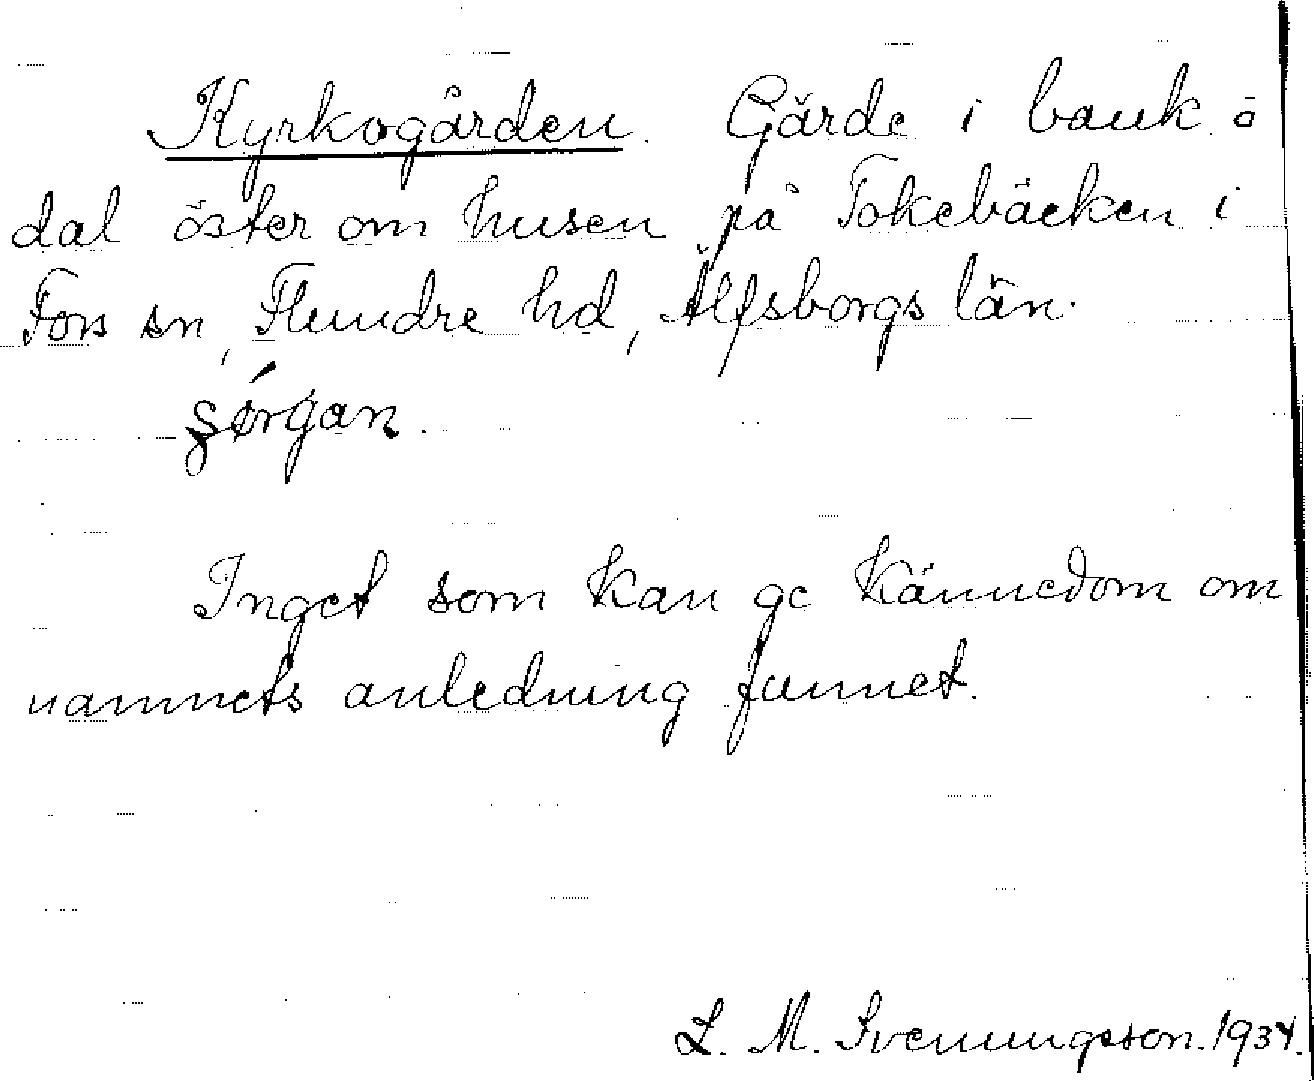 Kyrkogården. Gärde i bank o
dal öster om husen på Tokebäcken i
Fors sn, Flundre hd, Älfsborgs län.
Inget som kan ge kännedom om
namnets anledning funnet.
L. M. Svenungsson. 1934.